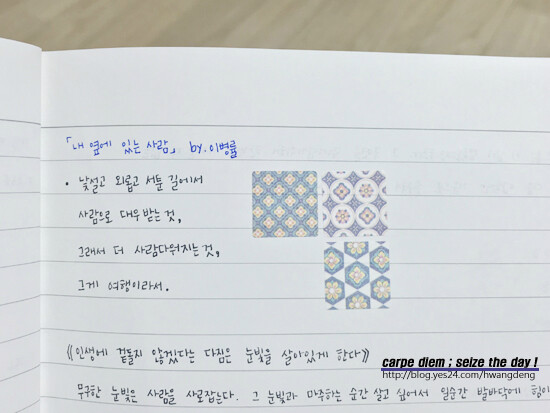 「내 옆에 있는 사람」 by. 이병률
• 낯설고 외롭고 서툰 길에서
사람으로 대우받는 것,
그래서 더 사람다워지는 것,
그게 여행이라서.
《인생에 겉돌지 않겠다는 다짐은 눈빛을 살아있게 한다》
무구한 눈빛은 사람을 사로잡는다. 그 눈빛과 마주하는 순간 살고 싶어서 일순간 발바닥에 힘이
carpe diem ; seize the day !
http://blog.yes24.com/hwangdeng